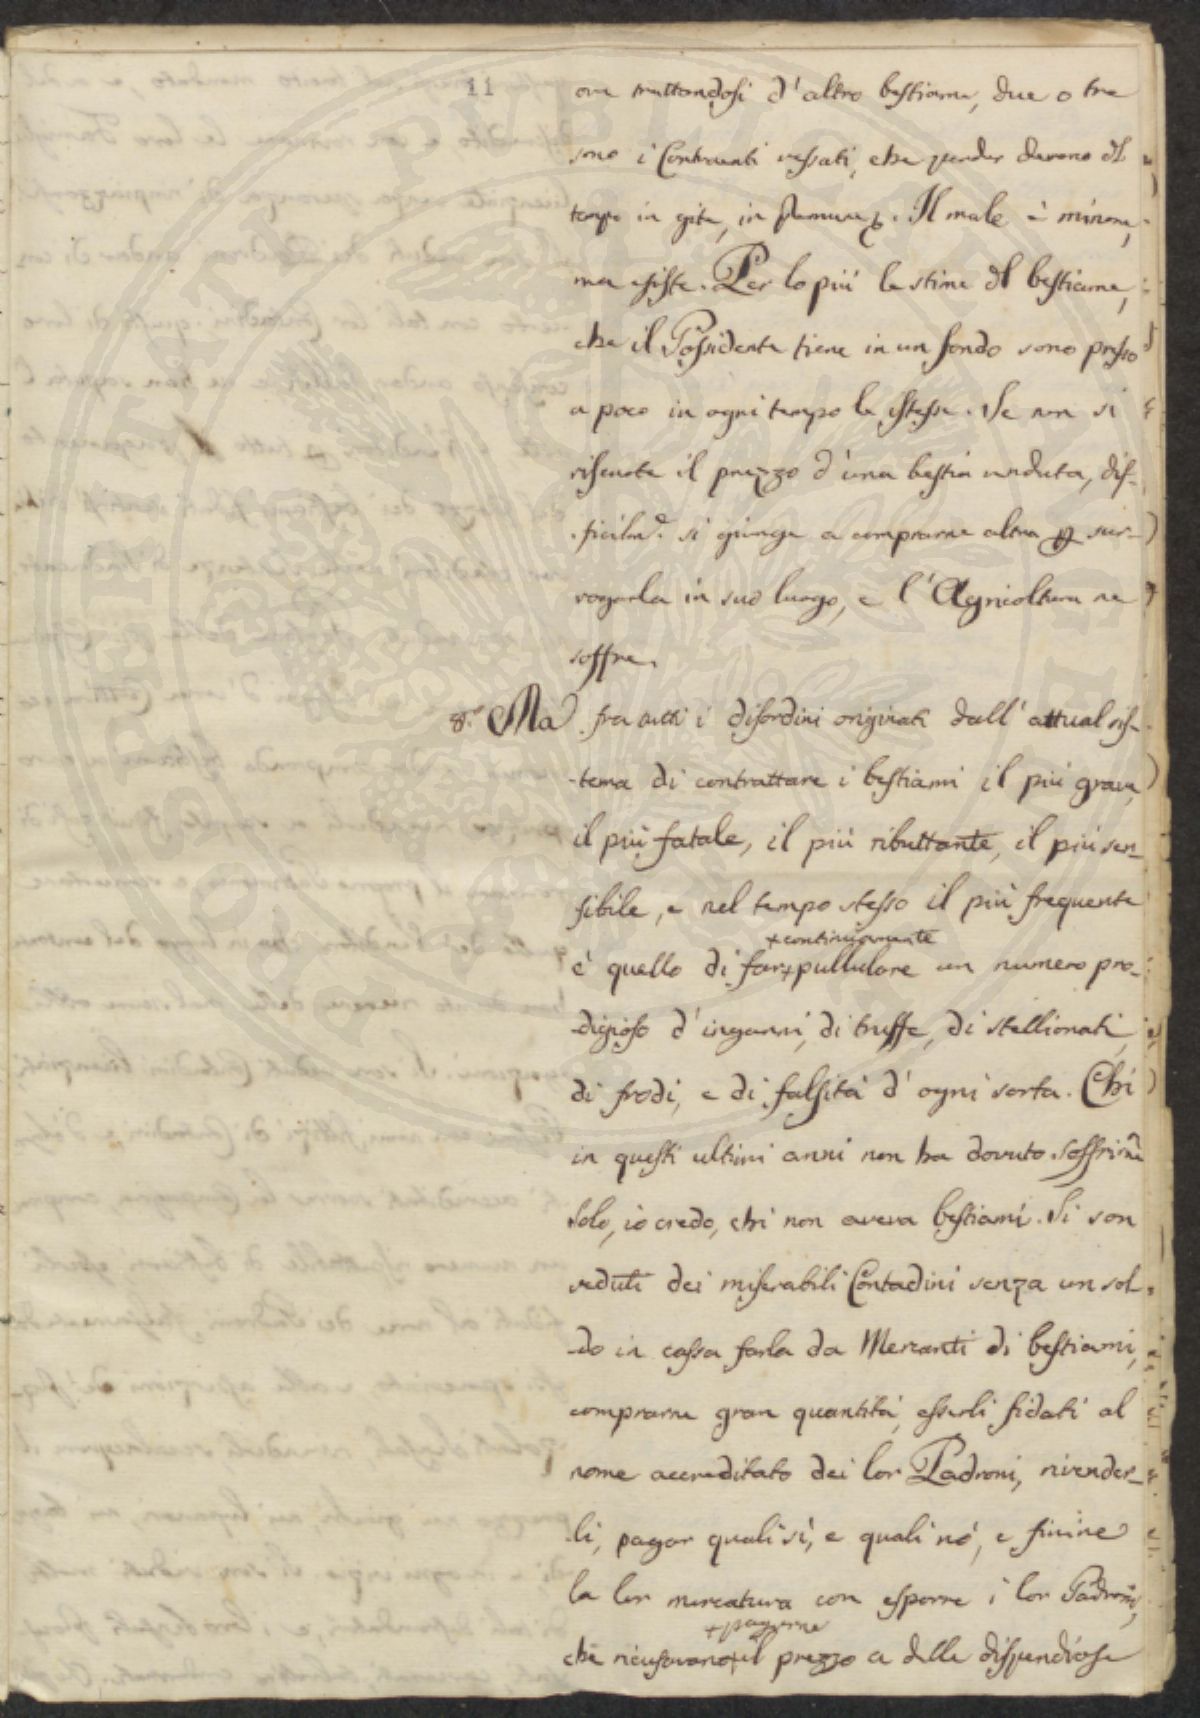 11
ove trattandosi d'altro bestiame, due o tre
sono i Contraenti vessati, che perder devono del
tempo in gite, in premure &. Il male è minore,
ma esiste. Per lo più le stime del bestiame,
che il Possidente tiene in un fondo sono presso
a poco in ogni tempo le istesse. Se non si
riscuote il prezzo d'una bestia venduta, dif-
ficilmᵉ. si giunge a comprarne altra per sur-
rogarla in suo luogo, e l'Agricoltura ne
soffre.
8.° Ma fra tutti i disordini originati dall'attual sis-
tema di contrattare i bestiami il più grave,
il più fatale, il più ributtante, il più sen-
sibile, e nel tempo stesso il più frequente
+continuamente
è quello di far+pullulare un numero pro-
digioso d'inganni, di truffe, di stellionati,
di frodi, e di falsità d'ogni sorta. Chi
in questi ultimi anni non ha dovuto soffrirne
solo, io credo, chi non aveva bestiami. Si son
veduti dei miserabili Contadini senza un sol-
do in cassa farla da Mercanti di bestiami,
comprarne gran quantità, esserli fidati al
nome accreditato dei lor Padroni, rivender-
li, pagar quali sì, e quali nò, e finire
la lor mercatura con esporre i lor Padroni,
+pagarne
che ricusavano+il prezzo a delle dispendiose